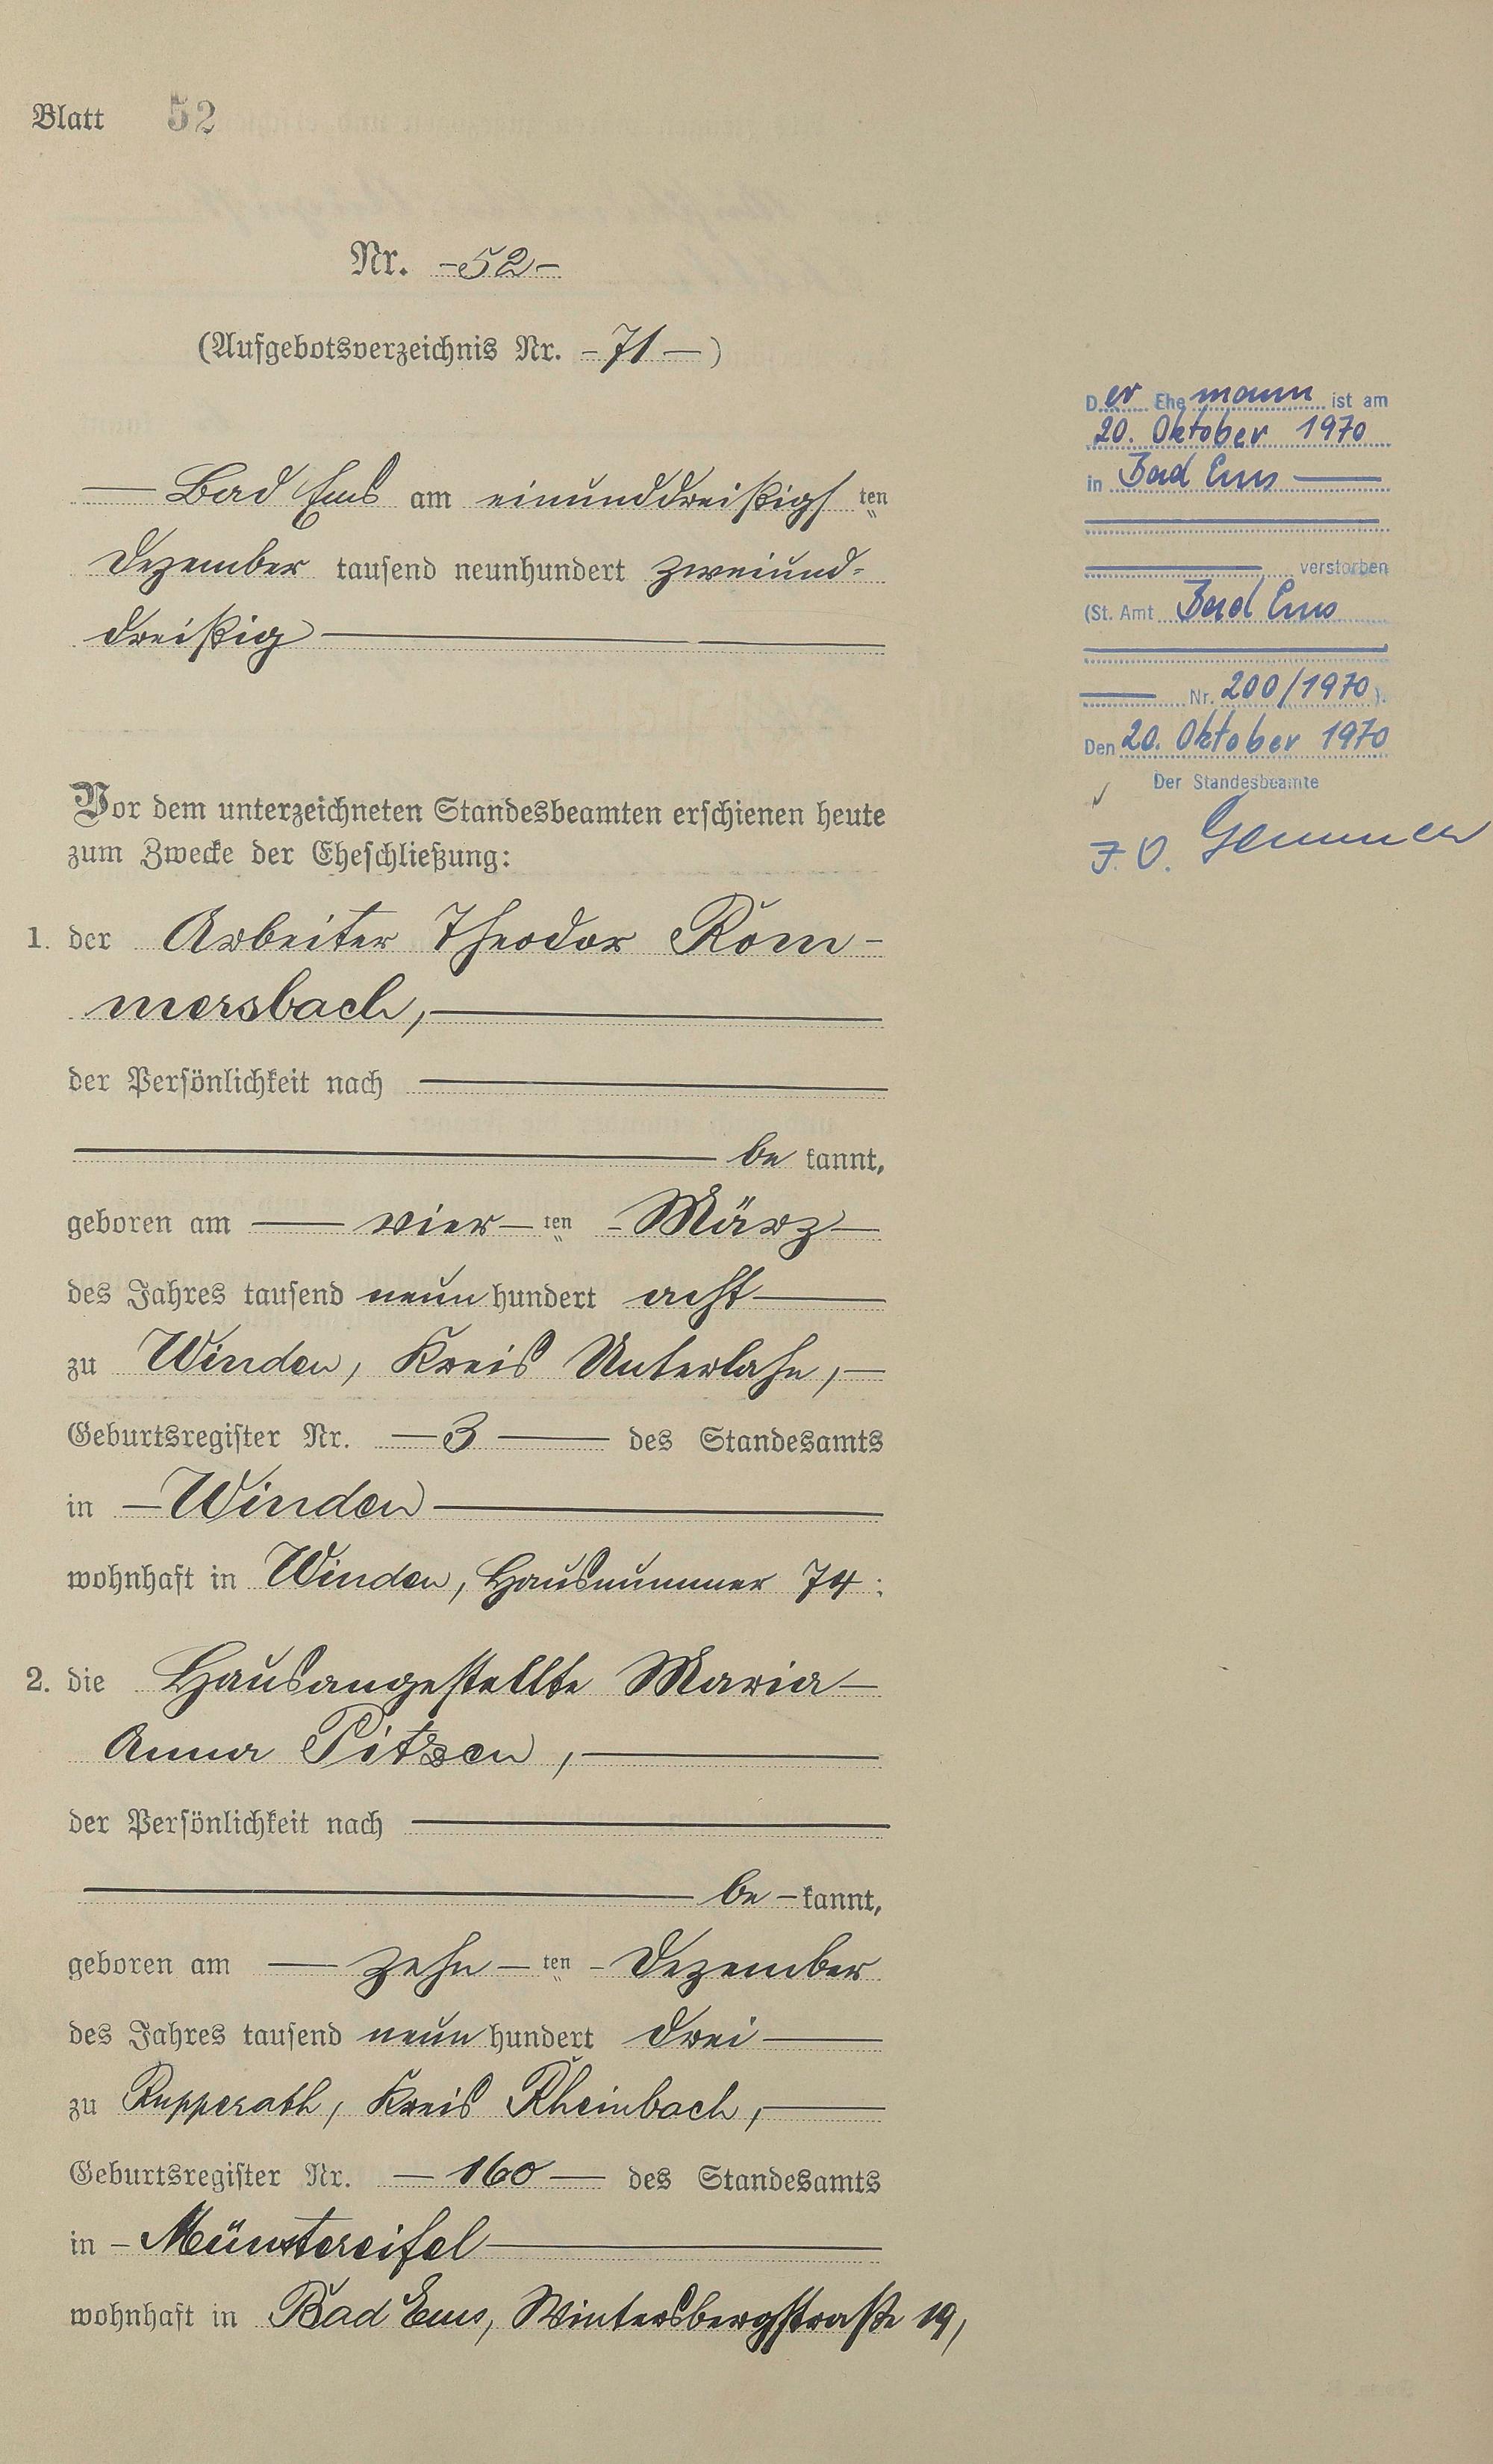 Blatt 52
Nr. -52-
(Aufgebotsverzeichnis Nr. -71-)
Bad Ems am einunddreißigsten
Dezember tausend neunhundert zweiund-
dreißig
Vor dem unterzeichneten Standesbeamten erschienen heute
zum Zwecke der Eheschließung:
1. der Arbeiter Theodor Rom-
mersbach,
der Persönlichkeit nach
be kannt,
geboren am vier ten März
des Jahres tausend neun hundert acht
zu Winden, Kreis Unterlahn,
Geburtsregister Nr. 3 des Standesamts
in Winden
wohnhaft in Winden, Hausnummer 74.
2. die Hausangestellte Maria
Anna Pitzen,
der Persönlichkeit nach
be kannt,
geboren am zehn ten Dezember
des Jahres tausend neun hundert drei
zu Rupperath, Kreis Rheinbach,
Geburtsregister Nr. 160 des Standesamts
in Münstereifel
wohnhaft in Bad Ems, Wintersbergstraße 19,
Der Ehemann ist am
20. Oktober 1970
in Bad Ems
verstorben
(St. Amt Bad Ems
Nr. 200/1970).
Den 20. Oktober 1970
Der Standesbeamte